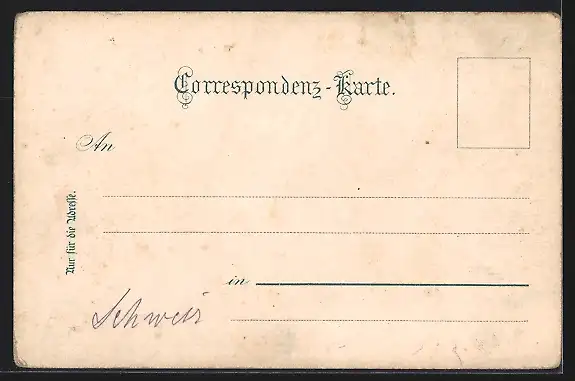 Correspondenz-Karte.
An
Nur für die Adresse.
in
Schweiz